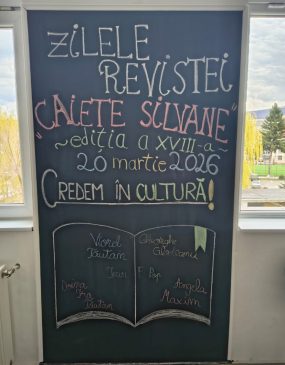 ZILELE
REVISTEI
"CAIETE SILVANE"
~ediția a XVIII-a~
20 martie 2026
CREDEM ÎN CULTURĂ!
Viorel
Tăutan
Gheorghe
Ioan F. Pop
Angela
Maxim
Tăutan